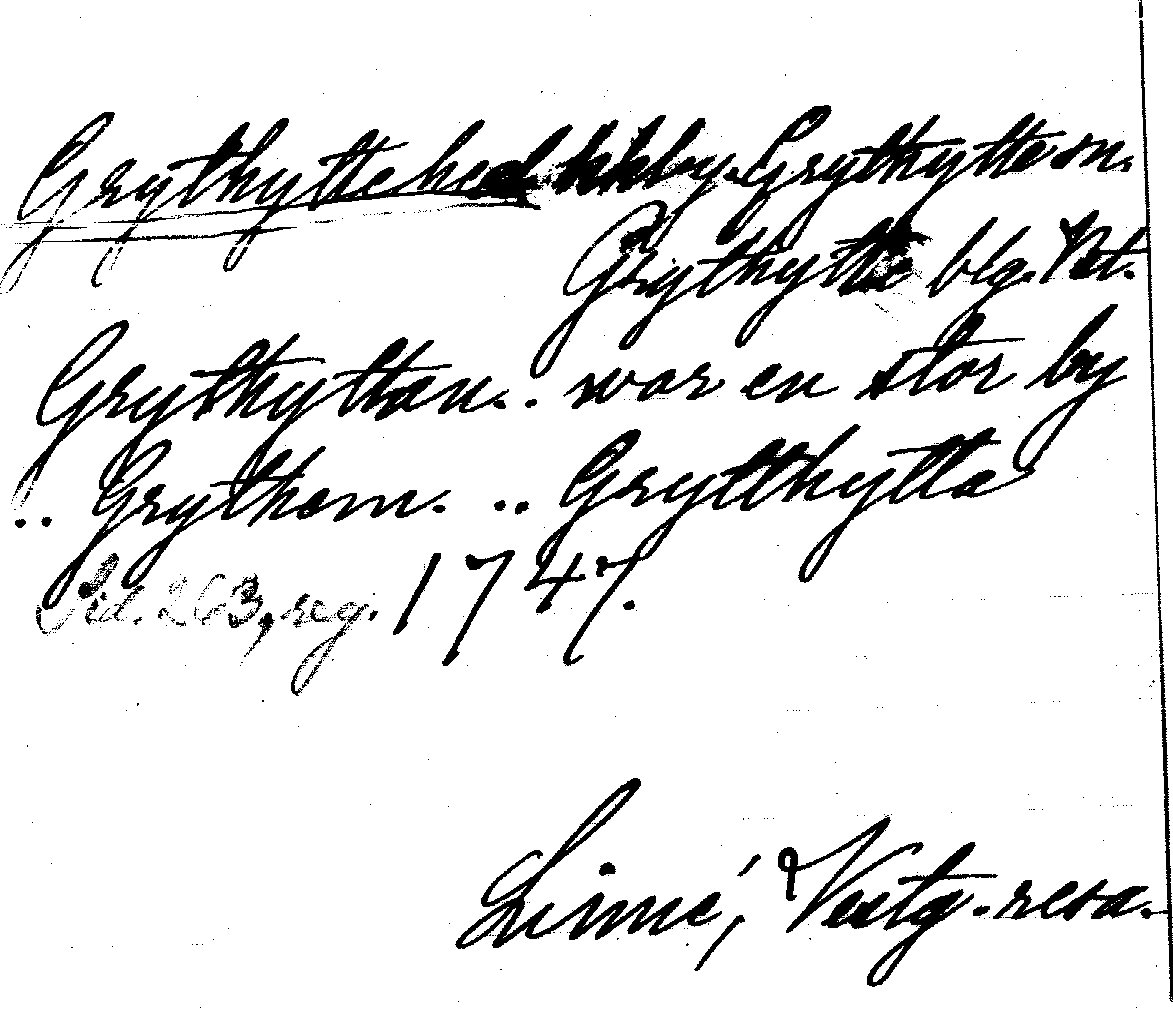 Grythyttehed kkby. Grythytte sn.
Grythytte blg. Vst.
Grythyttan.. war en stor by
.. Grythem. .. Grytthytta
Sid. 263, reg. 1747.
Linné, Vestg. resa.